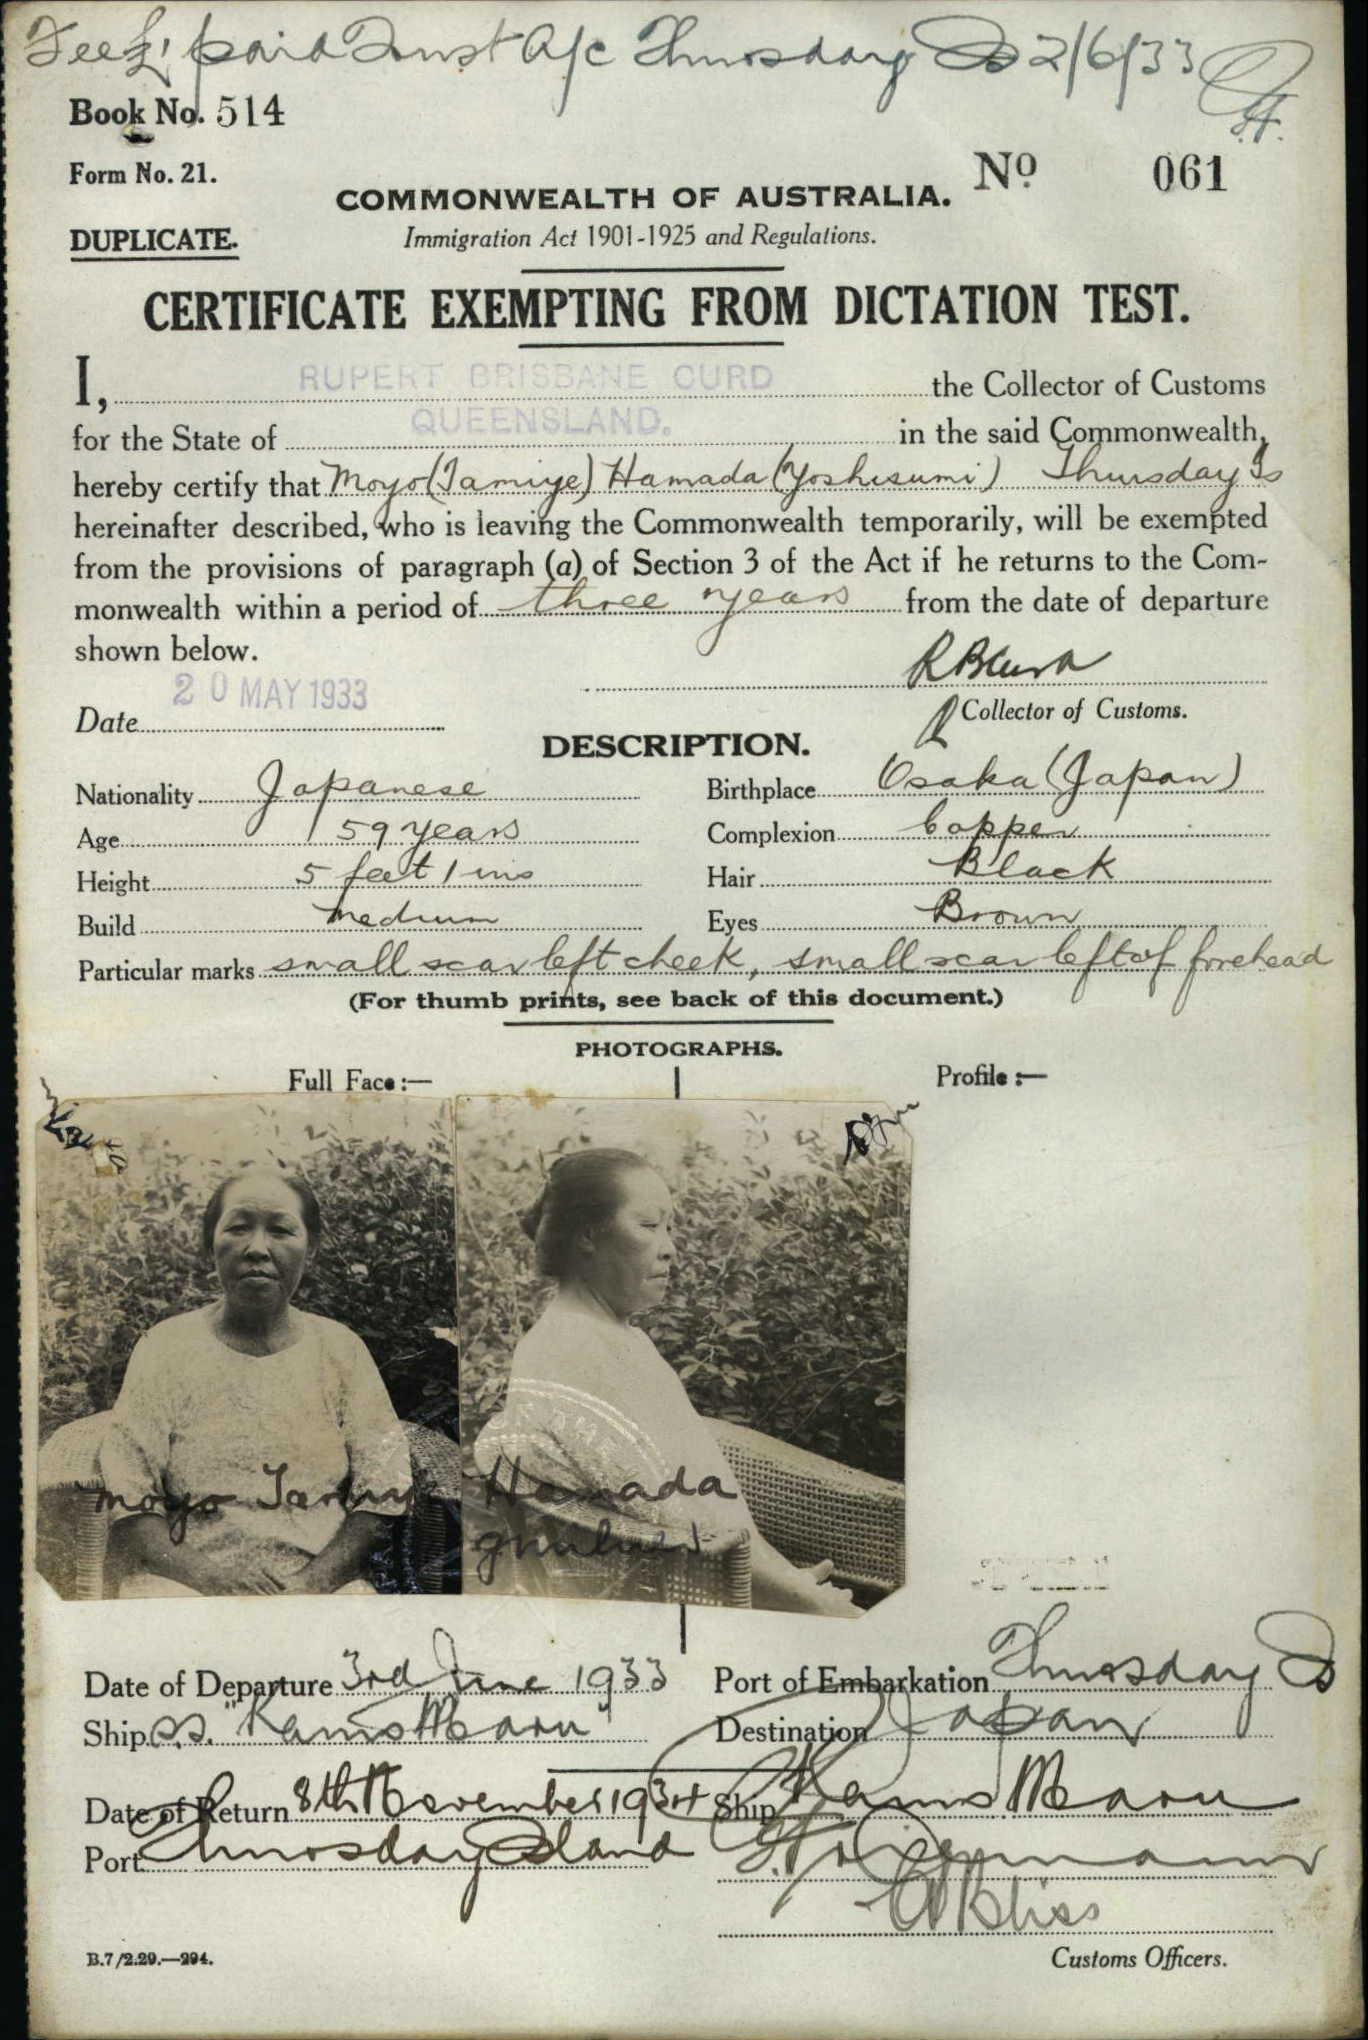 Fee £1 paid Trust A/c Thursday Is 2/6/33
Book No. 514
Form No. 21.
No 061
COMMONWEALTH OF AUSTRALIA.
DUPLICATE.
Immigration Act 1901-1925 and Regulations.
CERTIFICATE EXEMPTING FROM DICTATION TEST.
I, RUPERT BRISBANE CURD the Collector of Customs
for the State of QUEENSLAND. in the said Commonwealth,
hereby certify that Moyo (Tamiye) Hamada (Yoshisumi) Thursday Is
hereinafter described, who is leaving the Commonwealth temporarily, will be exempted
from the provisions of paragraph (a) of Section 3 of the Act if he returns to the Com-
monwealth within a period of three years from the date of departure
shown below.
R B Curd
Date 20 MAY 1933
Collector of Customs.
DESCRIPTION.
Nationality Japanese Birthplace Osaka (Japan)
Age 59 years Complexion Copper
Height 5 feet 1 ins Hair Black
Build medium Eyes Brown
Particular marks small scar left cheek, small scar left of forehead
(For thumb prints, see back of this document.)
PHOTOGRAPHS.
Full Face :— Profile :—
Moyo Hamada
Date of Departure 3rd June 1933 Port of Embarkation Thursday Is
Ship S.S. "Kamo Maru" Destination Japan
Date of Return 8th November 1934 Ship Kamo Maru
Port Thursday Island
Bliss
B.7/2.29.—294.
Customs Officers.